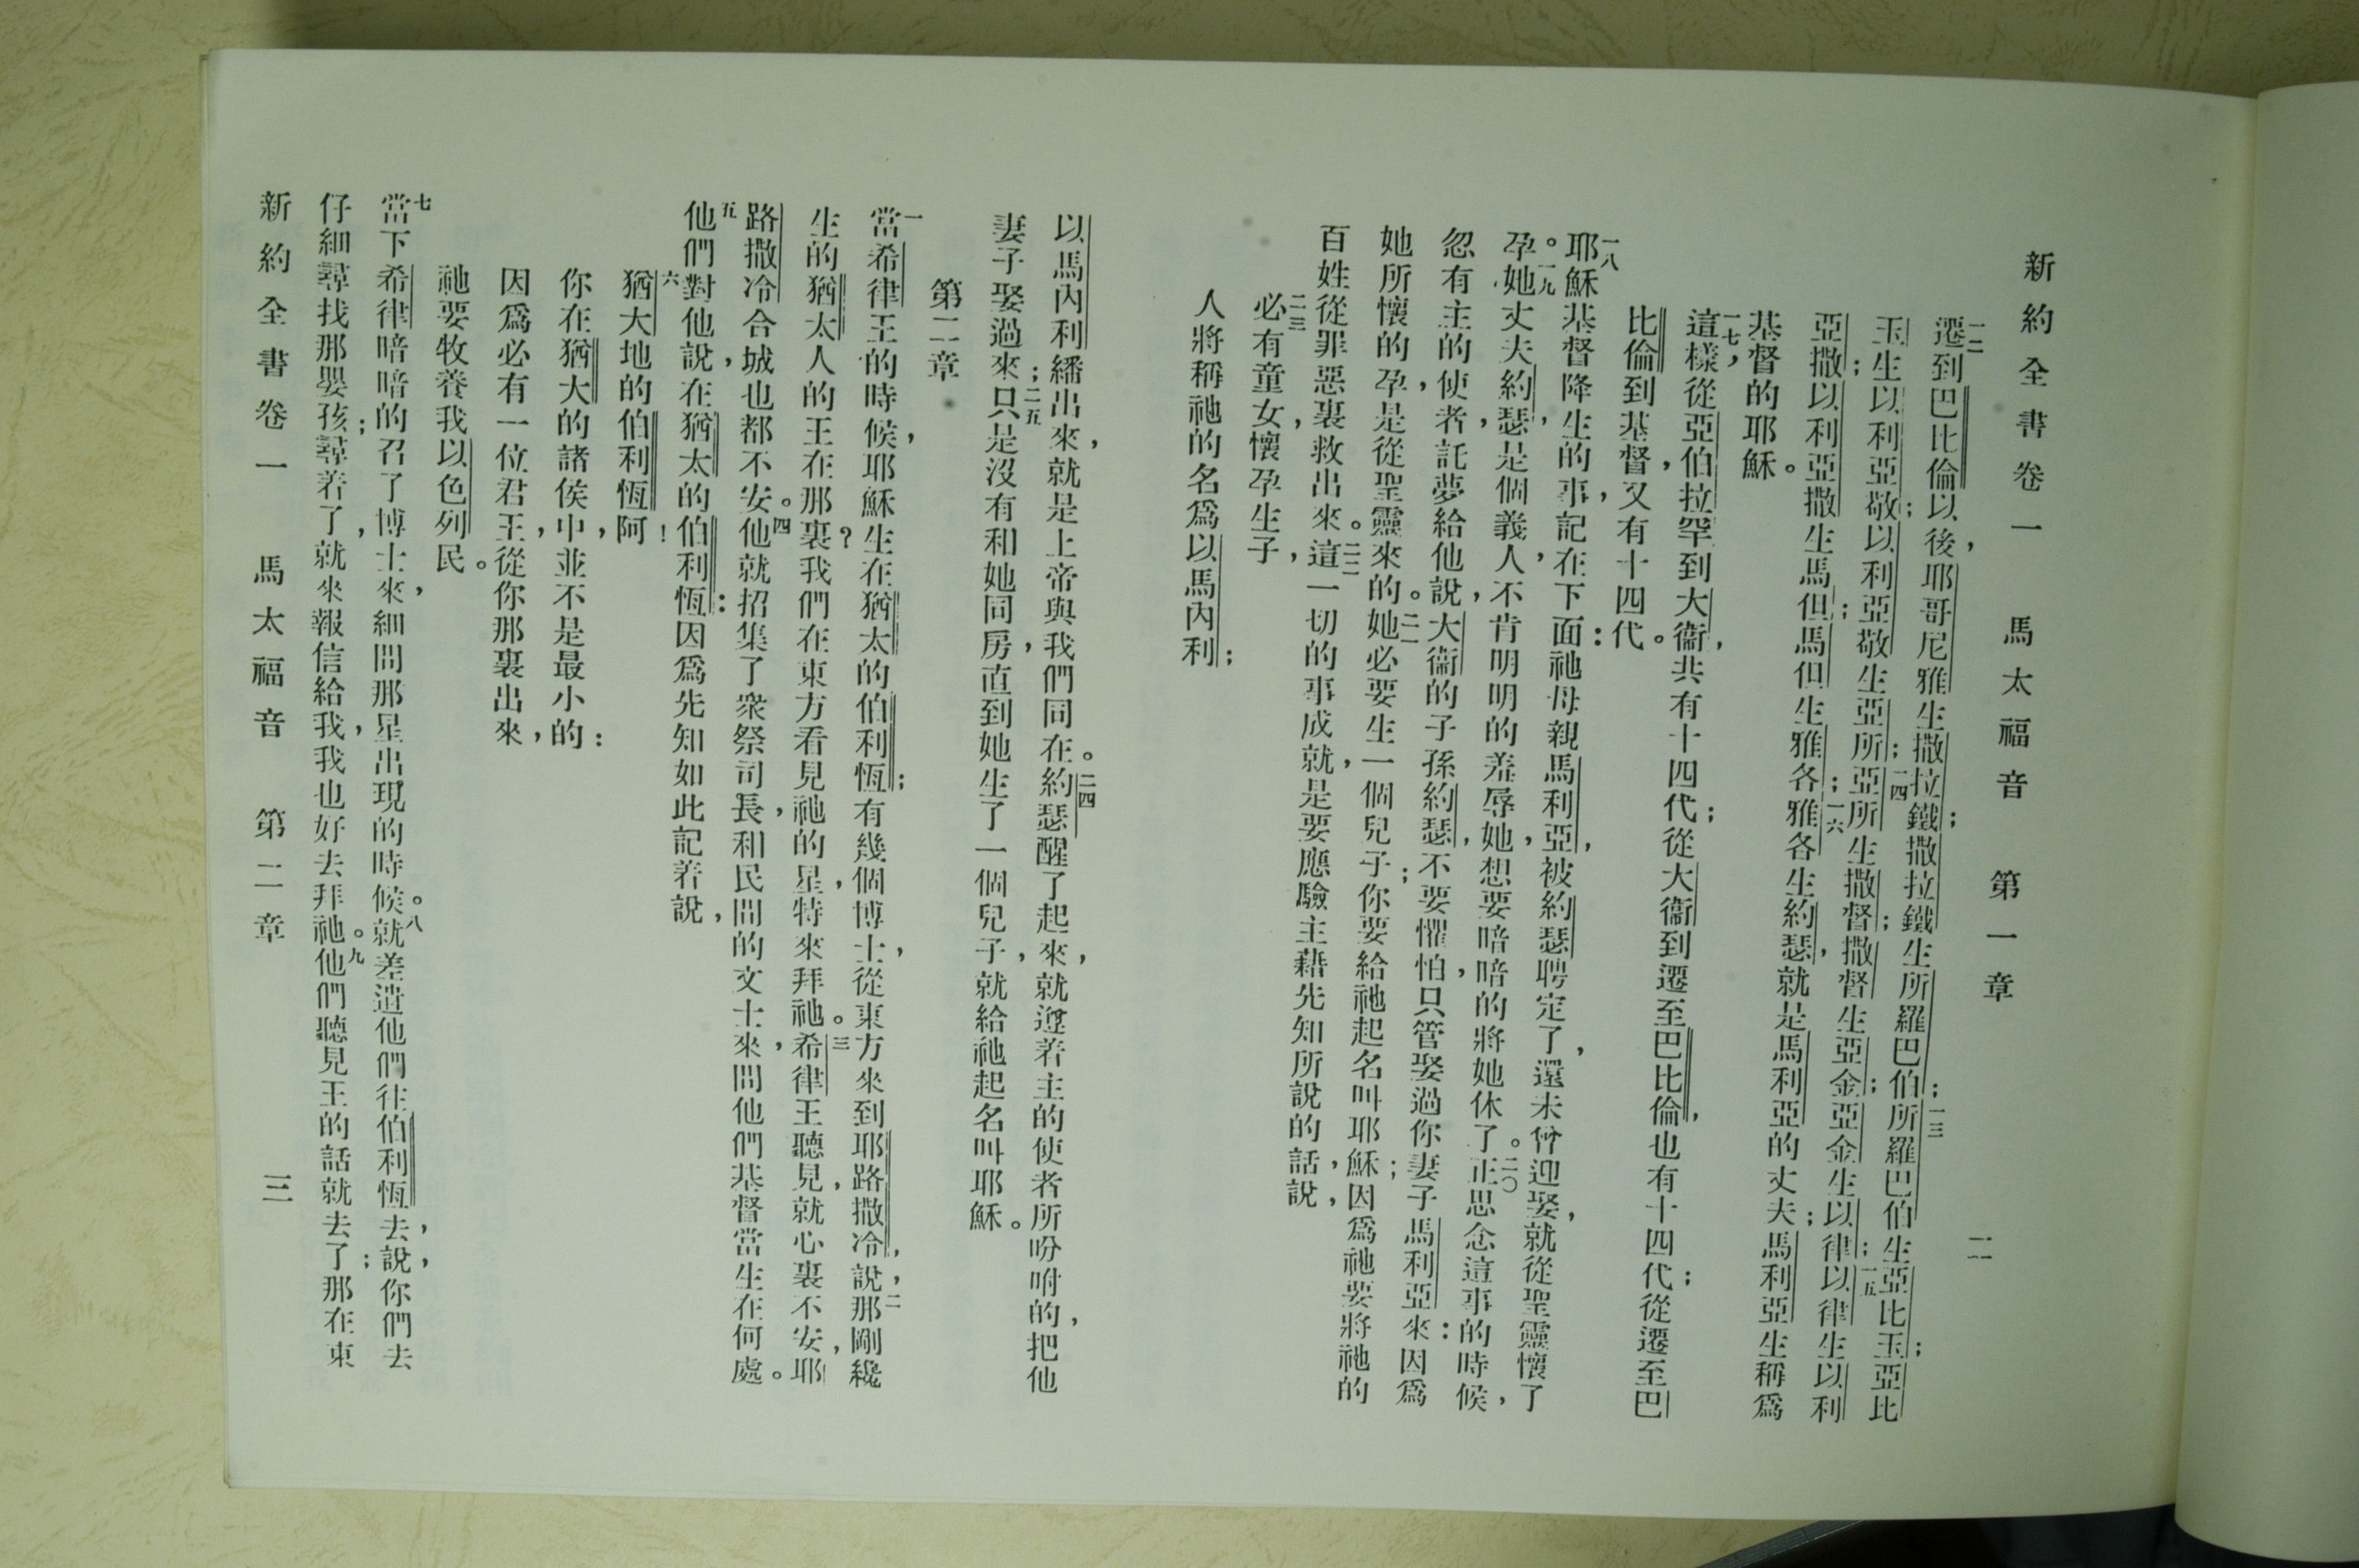 新約全書卷一 馬太福音 第一章 二
一二遷到巴比倫以後，耶哥尼雅生撒拉鐵；撒拉鐵生所羅巴伯；一三所羅巴伯生亞比玉；亞比
玉生以利亞敬；以利亞敬生亞所；一四亞所生撒督；撒督生亞金；亞金生以律；一五以律生以利
亞撒；以利亞撒生馬但；馬但生雅各；一六雅各生約瑟，就是馬利亞的丈夫；馬利亞生稱爲
基督的耶穌。
一七這樣，從亞伯拉罕到大衞，共有十四代；從大衞到遷至巴比倫，也有十四代；從遷至巴
比倫到基督，又有十四代。
一八耶穌基督降生的事，記在下面：祂母親馬利亞，被約瑟聘定了，還未曾迎娶，就從聖靈懷了
孕。一九她丈夫約瑟，是個義人，不肯明明的羞辱她，想要暗暗的將她休了。二〇正思念這事的時候，
忽有主的使者，託夢給他說，大衞的子孫約瑟，不要懼怕，只管娶過你妻子馬利亞來：因爲
她所懷的孕，是從聖靈來的。二一她必要生一個兒子；你要給祂起名叫耶穌；因爲祂要將祂的
百姓從罪惡裏救出來。二二這一切的事成就，是要應驗主藉先知所說的話，說，
二三必有童女，懷孕生子，
人將稱祂的名爲以馬內利；
以馬內利繙出來，就是上帝與我們同在。二四約瑟醒了起來，就遵着主的使者所吩咐的，把他
妻子娶過來；二五只是沒有和她同房，直到她生了一個兒子，就給祂起名叫耶穌。
第二章
一當希律王的時候，耶穌生在猶太的伯利恆；有幾個博士，從東方來到耶路撒冷，說，二那剛纔
生的猶太人的王在那裏？我們在東方看見祂的星，特來拜祂。三希律王聽見，就心裏不安，耶
路撒冷合城也都不安。四他就招集了衆祭司長，和民間的文士來，問他們基督當生在何處。
五他們對他說，在猶太的伯利恆：因爲先知如此記着說，
六猶大地的伯利恆阿！
你在猶大的諸侯中，並不是最小的：
因爲必有一位君王，從你那裏出來，
祂要牧養我以色列民。
七當下希律暗暗的召了博士來，細問那星出現的時候。八就差遣他們往伯利恆去，說，你們去
仔細尋找那嬰孩；尋着了，就來報信給我，我也好去拜祂。九他們聽見王的話就去了；那在東
新約全書卷一 馬太福音 第二章 三